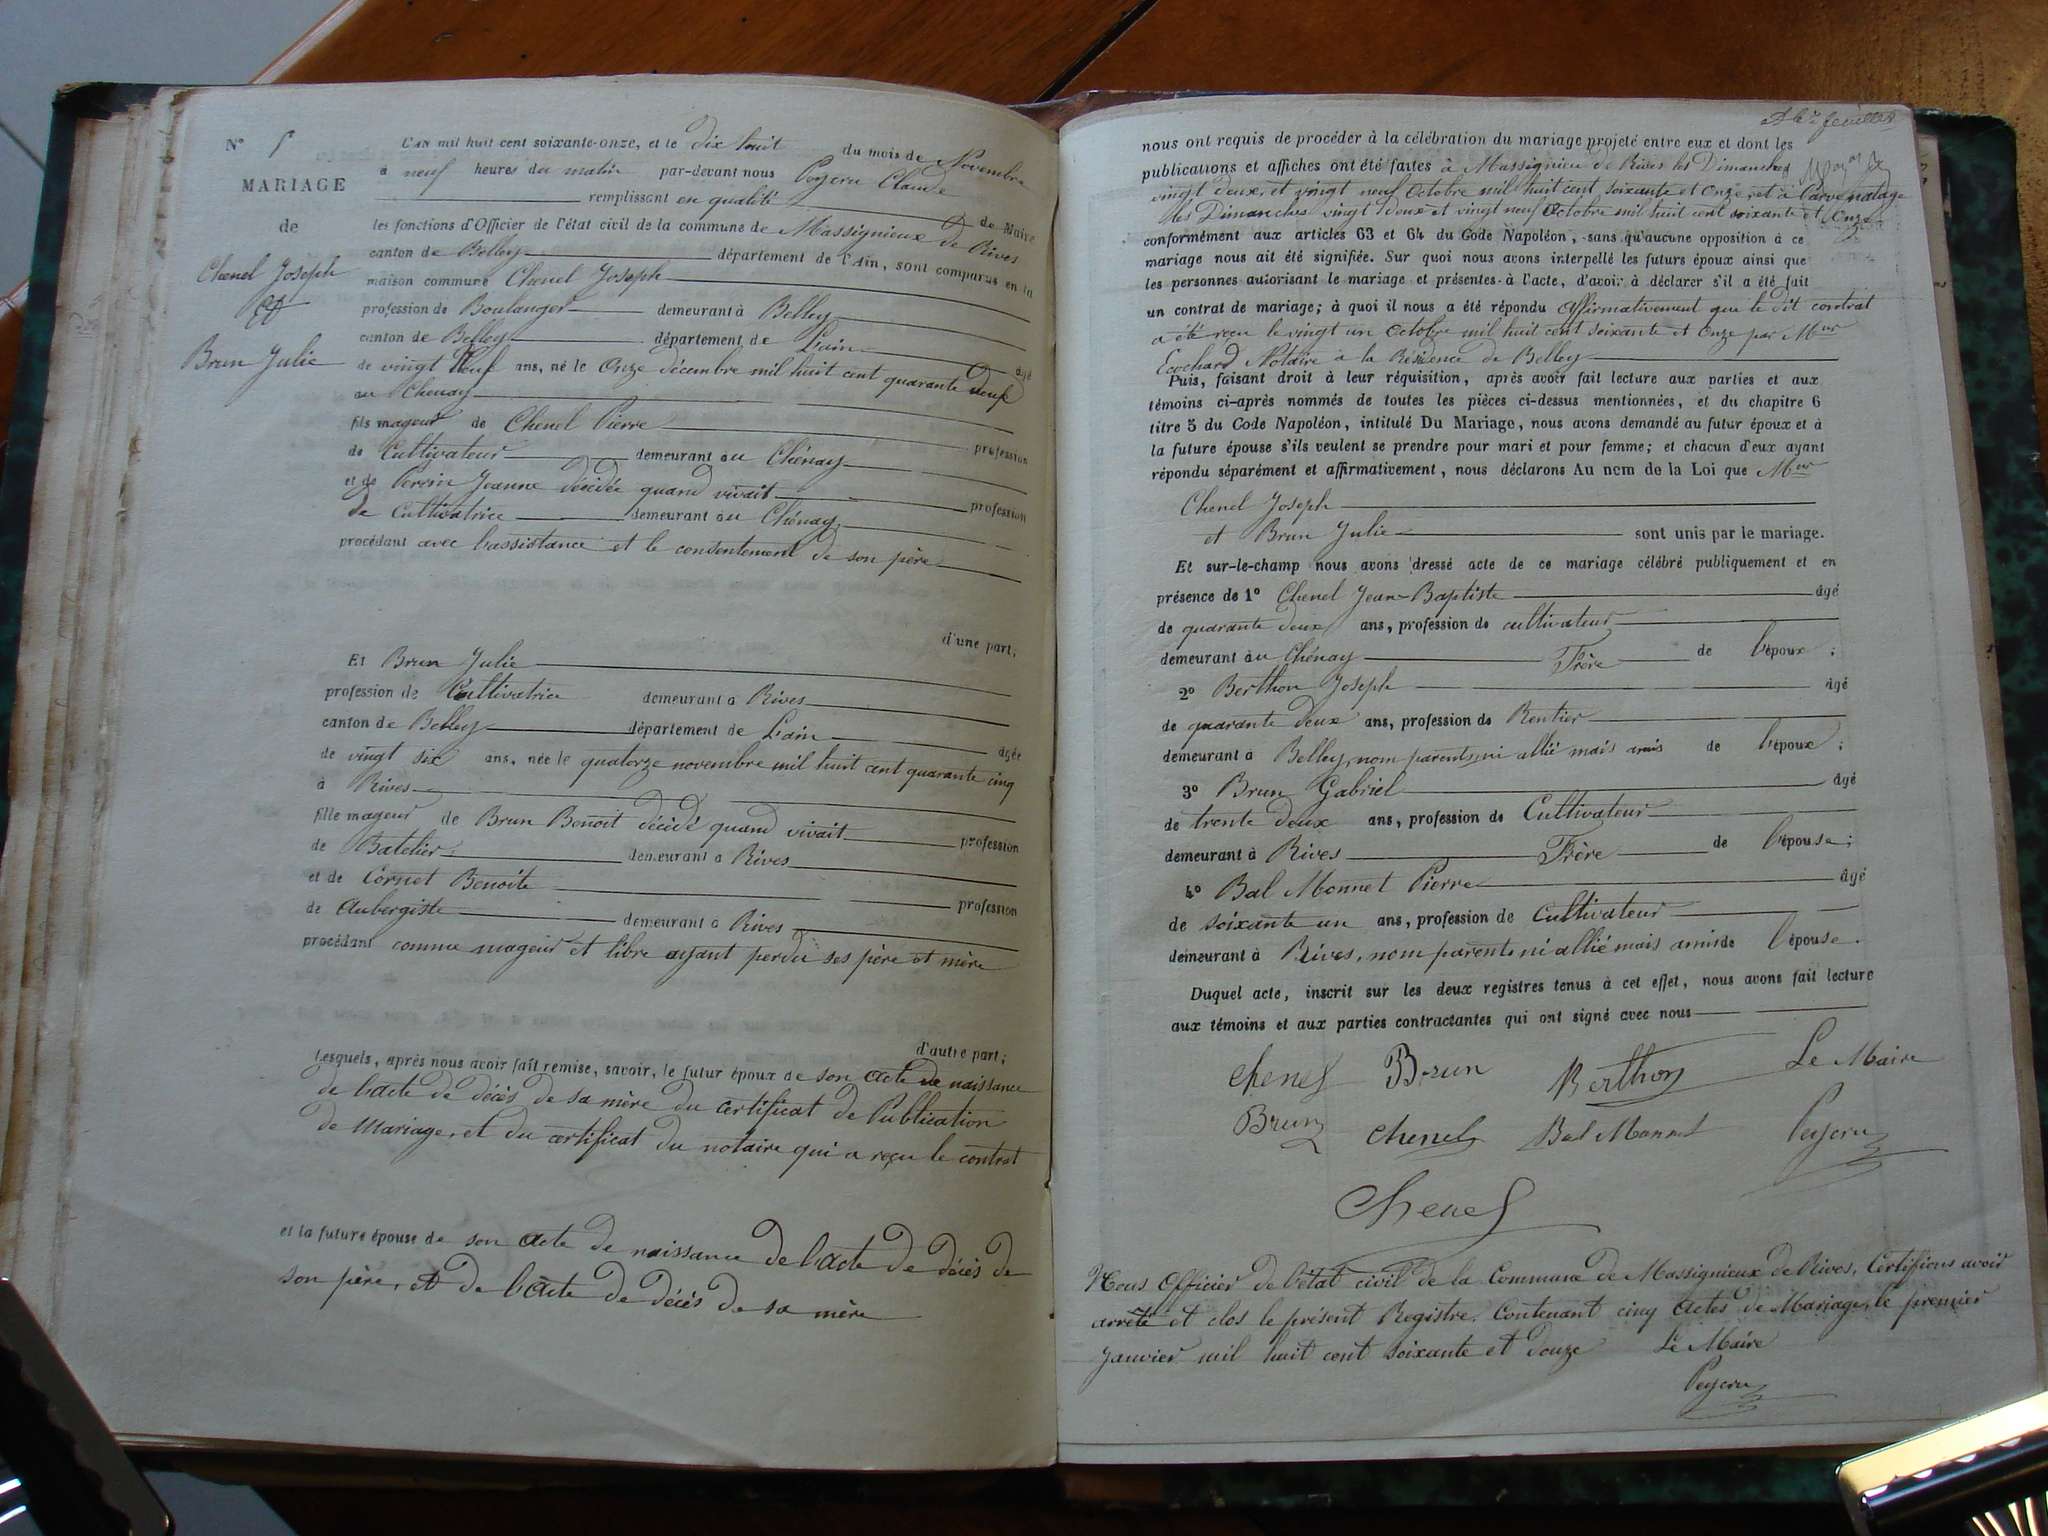 N° 5
MARIAGE
de
Chenel Joseph
et
Brun Julie
L'an mil huit cent soixante-onze, et le dix huit du mois de Novembre
à neuf heures du matin par-devant nous Peycru Claude
remplissant en qualité de Maire
les fonctions d'Officier de l'état civil de la commune de Massignieux de Rives
canton de Belley département de l'Ain, sont comparus en la
maison commune Chenel Joseph
profession de Boulanger demeurant à Belley
canton de Belley département de L'ain âgé
de vingt Neuf ans, né le Onze décembre mil huit cent quarante deux
au Chenay
fils majeur de Chenel Pierre profession
de Cultivateur demeurant au Chénay
et de Perrin Jeanne décidée quand vivait profession
de Cultivatrice demeurant au Chénay
procédant avec l'assistance et le consentement de son père
d'une part;
Et Brun Julie
profession de Cultivatrice demeurant à Rives
canton de Belley département de L'ain âgée
de vingt six ans, née le quatorze novembre mil huit cent quarante cinq
à Rives
fille majeur de Brun Benoit décidé quand vivait profession
de Batelier demeurant à Rives
et de Cornet Benoite profession
de Aubergiste demeurant à Rives
procédant comme majeur et libre ayant perdu ses père et mère
d'autre part;
Lesquels, après nous avoir fait remise, savoir, le futur époux de son acte de naissance
de l'acte de décès de sa mère du certificat de Publication
de Mariage, et du certificat du notaire qui a reçu le contrat
et la future épouse de son acte de naissance de l'acte de décès de
son père, et de l'acte de décès de sa mère
feuillet
nous ont requis de procéder à la célébration du mariage projeté entre eux et dont les
publications et affiches ont été faites à Massignieu de Rives les Dimanches
vingt deux, et vingt neuf Octobre mil huit cent soixante et Onze, et à
les Dimanches vingt deux et vingt neuf Octobre mil huit cent soixante et Onze
conformément aux articles 63 et 64 du Code Napoléon, sans qu'aucune opposition à ce
mariage nous ait été signifiée. Sur quoi nous avons interpellé les futurs époux ainsi que
les personnes autorisant le mariage et présentes à l'acte, d'avoir à déclarer s'il a été fait
un contrat de mariage; à quoi il nous a été répondu affirmativement que le dit contrat
a été reçu le vingt un Octobre mil huit cent soixante et Onze par Mer
Ecochard Notaire à la Résidence de Belley
Puis, faisant droit à leur réquisition, après avoir fait lecture aux parties et aux
témoins ci-après nommés de toutes les pièces ci-dessus mentionnées, et du chapitre 6
titre 5 du Code Napoléon, intitulé Du Mariage, nous avons demandé au futur époux et à
la future épouse s'ils veulent se prendre pour mari et pour femme; et chacun d'eux ayant
répondu séparément et affirmativement, nous déclarons Au nom de la Loi que Mer
Chenel Joseph
et Brun Julie sont unis par le mariage.
Et sur-le-champ nous avons dressé acte de ce mariage célébré publiquement et en
présence de 1° Chenel Jean-Baptiste âgé
de quarante deux ans, profession de cultivateur
demeurant au Chénay Frère de l'époux;
2° Berthon Joseph âgé
de quarante deux ans, profession de Rentier
demeurant à Belley, nom parents, ni allié mais amis de l'époux;
3° Brun Gabriel âgé
de trente deux ans, profession de Cultivateur
demeurant à Rives Frère de l'épouse;
4° Bal Monnet Pierre âgé
de soixante un ans, profession de cultivateur
demeurant à Rives, nom parents ni allié mais amis de l'épouse.
Duquel acte, inscrit sur les deux registres tenus à cet effet, nous avons fait lecture
aux témoins et aux parties contractantes qui ont signé avec nous
Chenel Brun Berthon Le Maire
Brun Chenel Bal Monnet Peycru
Chenel
Nous Officier de l'état civil de la Commune de Massignieux de Rives, Certifions avoir
arrêté et clos le présent Registre. Contenant cinq actes de Mariage, le premier
Janvier mil huit cent soixante et douze Le Maire
Peycru